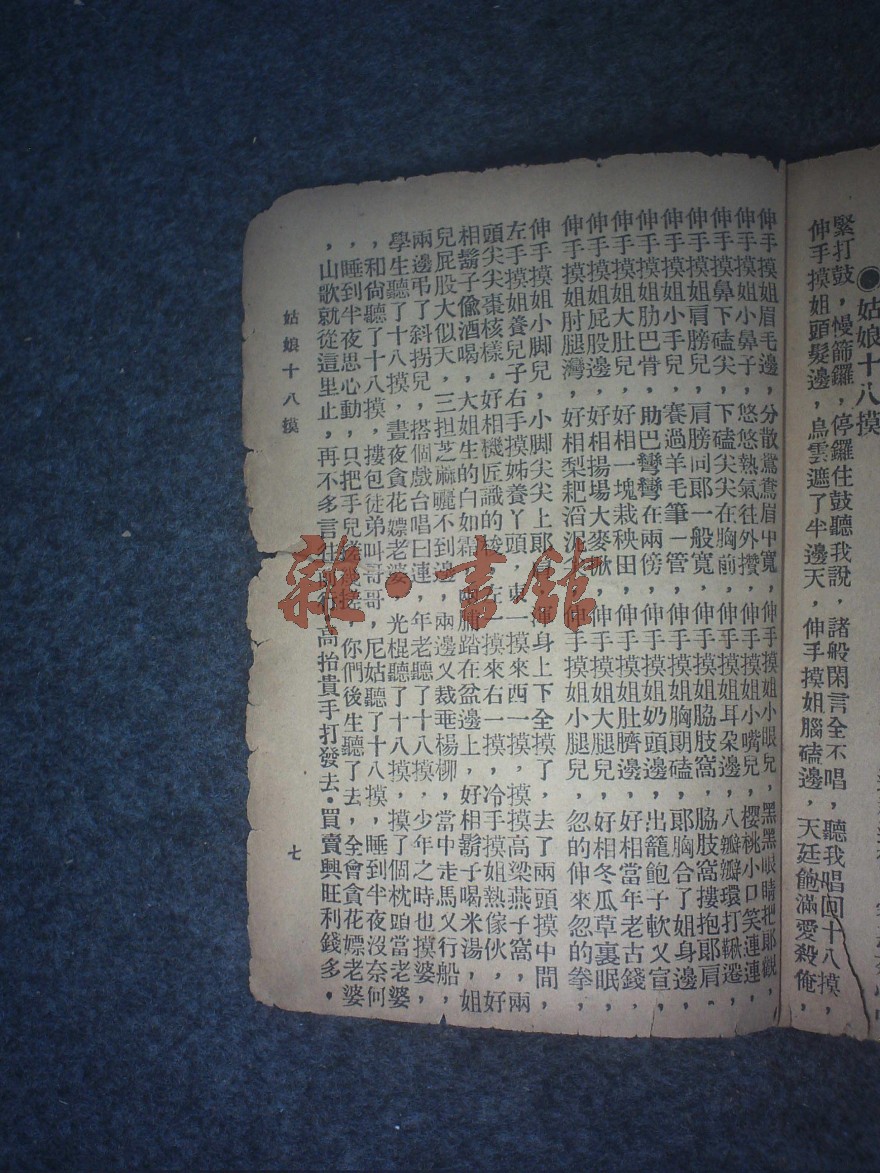 ●姑娘十八摸
緊打鼓，慢篩鑼，停鑼住鼓聽我說，諸般閑言全不唱，聽我唱回十八摸，
伸手摸姐頭髮邊，烏雲遮了半邊天，伸手摸姐腦磕邊，天廷飽滿愛殺俺，
伸手摸姐眉毛邊，分散鴛鴦眉中寬，伸手摸姐小眼兒，黑黑眼睛把郎觀，
伸手摸姐小鼻子，悠悠熱氣往外攢，伸手摸姐小嘴兒，櫻桃小口笑連連，
伸手摸鼻下磕尖，下磕尖尖在胸前，伸手摸姐耳朵邊，八瓣瓣環打鞦遷，
伸手摸姐肩膀兒，肩膀同郎一般寬，伸手摸姐脇肢窩，脇肢窩摟抱郎肩，
伸手摸姐小手兒，賽過羊毛筆一管，伸手摸姐胸前磕，郎胸合了姐身邊，
伸手摸姐肋巴骨，肋巴彎彎在兩傍，伸手摸姐奶頭邊，出籠飽子軟又宣，
伸手摸姐大肚兒，好相一塊栽秧田，伸手摸姐肚臍邊，好相當年老古錢，
伸手摸姐屁股邊，好相揚場大麥杴，伸手摸姐大腿兒，好相冬瓜草裏眠，
伸手摸姐肘腿灣，好相梨耙滔泥，伸手摸姐小腿兒，忽的伸來忽的拳，
伸手摸姐小脚兒，小脚尖尖上郎，渾身上下全摸了，去了兩頭摸中間，
左手摸姐養兒子右手摸姊養丫頭，東一摸來西一摸，摸摸高梁燕子窩，兩
頭尖尖棗核樣，好相機匠識的梭，在一摸來右一摸，冷手摸姐熱傢伙，好
相鬍子偸酒喝，大姐生的白如霜，兩脚踏在盆邊上，好相鬍子喝米湯，姐
兒屁股大似天，三担芝麻曬不到邊，兩邊又栽垂楊柳，當中走馬又行船，
兩邊弔了斜拐兒，搭個戲台唱曰連，年老聽了十八摸，少年之時也摸婆，
學生聽了十八摸，晝夜貪花嫖老婆，光棍聽了十八摸，摸了個枕頭當老婆
，和尙聽了十八摸，摟包徒弟叫哥哥，尼姑聽了十八摸，睡到半夜沒奈何
，睡到半夜思心動，只把手兒搓搓，你們後生聽了去，全會貪花嫖老婆
，山歌就從這里止，再不多言往前行，高抬貴手打發去。買賣興旺利錢多。
姑娘十八摸
七
雜·書館